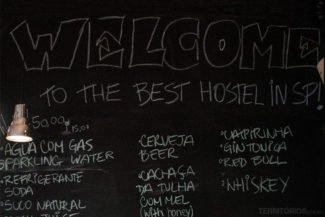 WELCOME
TO THE BEST HOSTEL IN SP!
50,00
15,00
ÁGUA COM GÁS
SPARKLING WATER
REFRIGERANTE
SODA
SUCO NATURAL
CERVEJA
BEER
CACHAÇA
DA TULHA
COM MEL
(with honey)
CAIPIRINHA
GIN TONICA
RED BULL
WHISKEY
TERRITORIOS